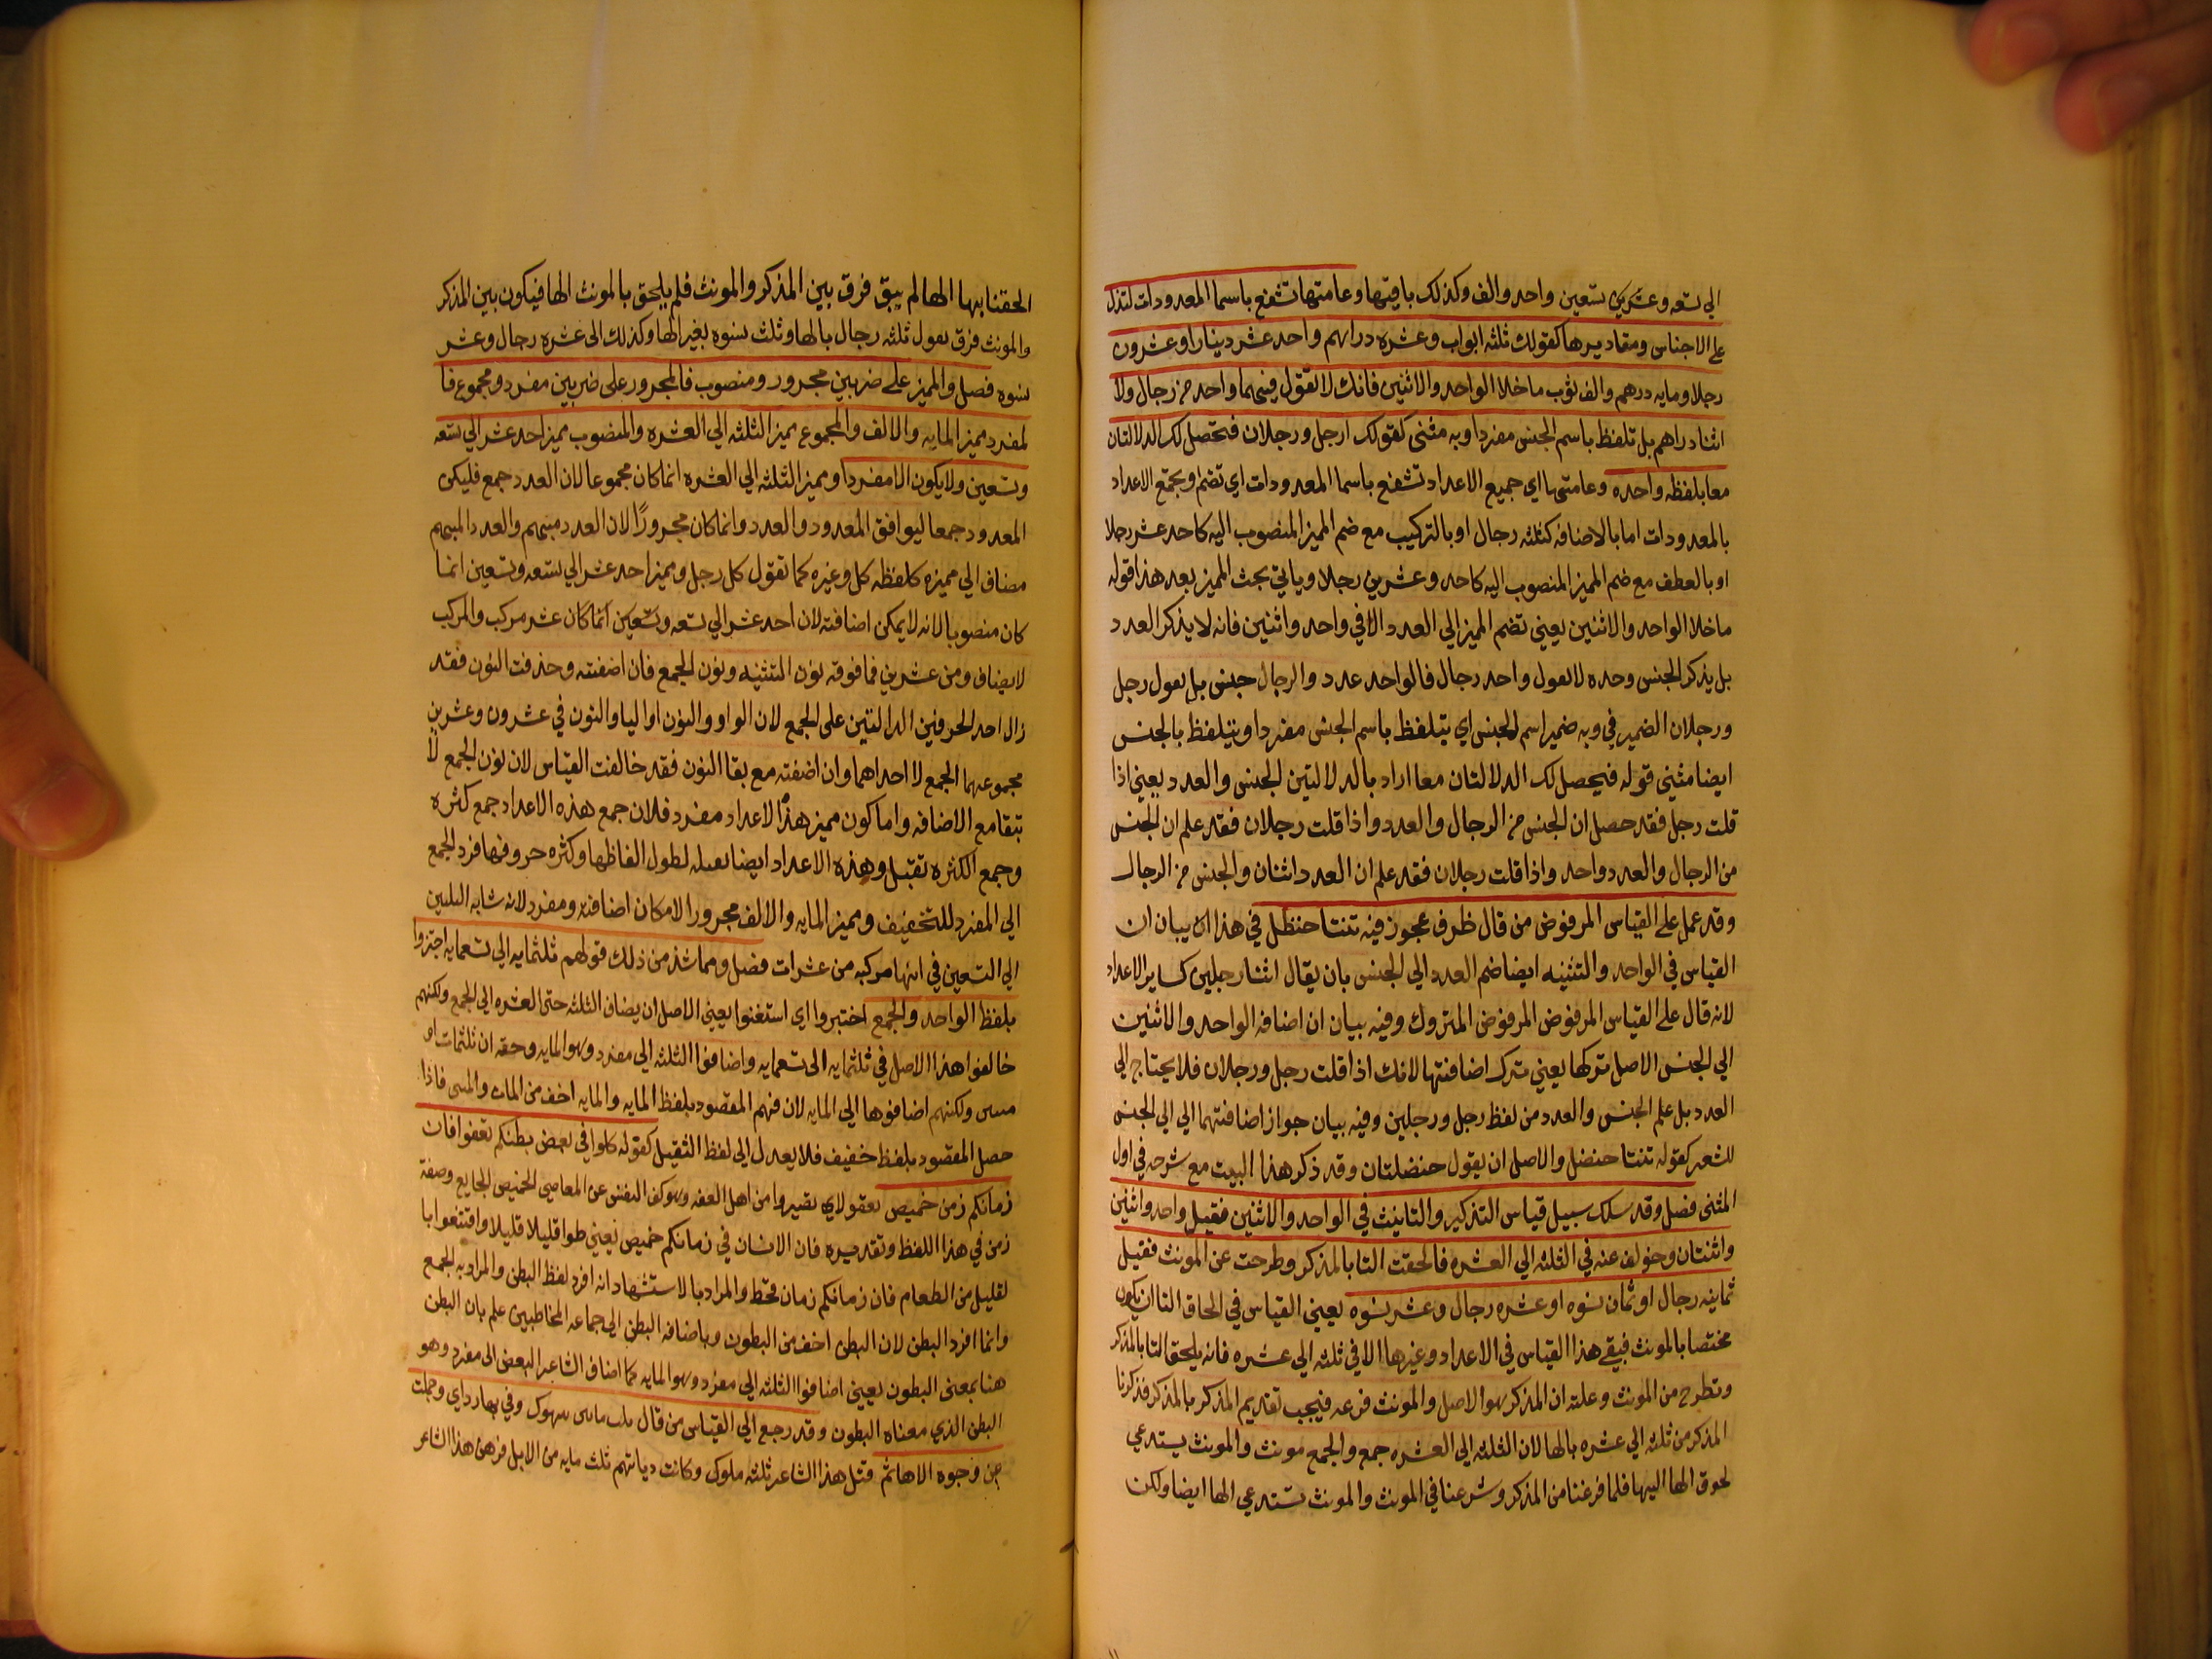 الي تسعه وعشرين تسعين واحد والف وكذلك باقيتها وعامتها تشفع باسما المعدودات لتدل
علي الاجناس ومقاديرها كقولك ثلثه ابواب وعشره دراهم واحد عشر دينارا وعشرون
رجلا ومايه درهم والف ثوب ما خلا الواحد والاثنين فانك لا تقول فيهما واحد من رجال ولا
اثنا دراهم بل تلفظ باسم الجنس مفردا وبه مثنى كقولك ارجل ورجلان فتحصل لك الدلالتان
معا بلفظه واحده وعامتها اي جميع الاعداد تشفع باسما المعدودات اي تضم ويجمع الاعداد
بالمعدودات اما بالاضافه كثلثه رجال او بالتركيب مع ضم المميز المنصوب اليه كاحد عشر رجلا
او بالعطف مع ضم المميز المنصوب اليه كاحد وعشرين رجلا وياتي بحث المميز بعد هذا قوله
ما خلا الواحد والاثنين يعني تضم المميز الي العدد الا في واحد واثنين فانه لا يذكر العدد
بل يذكر الجنس وحده لا يقول واحد رجال فالواحد عدد والرجال جنس بل يقول رجل
ورجلان الضمير في وبه ضمير اسم الجنس اي يتلفظ باسم الجنس مفردا ويتلفظ بالجنس
ايضا مثني قوله فيحصل لك الدلالتان معا اراد بالدلالتين الجنس والعدد يعني اذا
قلت رجل فقد حصل ان الجنس من الرجال والعدد واذا قلت رجلان فقد علم ان الجنس
من الرجال والعدد واحد واذا قلت رجلان فقد علم ان العدد اثنان والجنس من الرجال
وقد عمل علي القياس المرفوض من قال ظرف عجوز فيه ثنتا حنظل في هذا الان بيان ان
القياس في الواحد والتثنيه ايضا ضم العدد الي الجنس بان يقال اثنا رجلين كساير الاعداد
لانه قال علي القياس المرفوض المرفوض المتروك وفيه بيان ان اضافه الواحد والاثنين
الي الجنس الاصل تركها يعني ترك اضافتها لانك اذا قلت رجل ورجلان فلا يحتاج الي
العدد بل علم الجنس والعدد من لفظ رجل ورجلين وفيه بيان جواز اضافتهما الي الي الجنس
للشعر كقوله ثنتا حنضل والاصل ان يقول حنضلتان وقد ذكر هذا البيت مع شرحه في اول
المثنى فصل وقد سلك سبيل قياس التذكير والتانيث في الواحد والاثنين فقيل واحد واثنين
واثنتان وخولف عنه في الثلثه الي العشره فالحقت التا بالمذكر وطرحت عن المونث فقيل
ثمانيه رجال او ثمان نسوه او عشره رجال وعشر نسوه يعني القياس في الحاق التا ان يكون
مختصا بالمونث فبقي هذا القياس في الاعداد وغيرها الا في ثلثه الي عشره فانه يلحق التا بالمذكر
وتطرح من المونث وعلته ان المذكر هو الاصل والمونث فرعه فيجب تقديم المذكر بالمذكر فذكرنا
المذكر من ثلثه الي عشره بالها لان الثلثه الي العشره جمع والجمع مونث والمونث يستدعي
لحوق الها اليها فلما فرغنا من المذكر وشرعنا في المونث والمونث تستدعي الها ايضا ولكن
الحقنا بها الها لم يبق فرق بين المذكر والمونث فلم يلحق بالمونث الها فيكون بين المذكر
والمونث فرق يقول ثلثه رجال بالها وثلث نسوه بغير الها وكذلك الى عشره رجال وعشر
نسوه فصل والمميز علي ضربين مجرور ومنصوب فالمجرور على ضربين مفرد ومجموع فا
لمفرد مميز المايه والالف والمجموع مميز الثلثه الي العشره والمنصوب مميز احد عشر الي تسعه
وتسعين ولا يكون الا مفردا ومميز الثلثه الي العشره انما كان مجموعا لان العدد جمع فليكن
المعدود جمعا ليوافق المعدود والعدد وانما كان مجرورًا لان العدد مبهم والعدد المبهم
مضاف الي مميزه كلفظه كل وغيره كما تقول كل رجل ومميز احد عشر الي تسعه وتسعين انما
كان منصوبا لانه لا يمكن اضافته لان احد عشر الي تسعه وتسعين انما كان عشر مركب والمركب
لا يضاف ومن عشرين فما فوقه نون التثنيه ونون الجمع فان اضفته وحذفت النون فقد
زال احد الحرفين الدالتين على الجمع لان الواو والنون او اليا والنون في عشرون وعشرين
مجموعهما الجمع لا احداهما وان اضفته مع بقا النون فقد خالفت القياس لان نون الجمع لا
تبقا مع الاضافه واما كون مميز هذا الاعداد مفرد فلان جمع هذه الاعداد جمع كثره
وجمع الكثره ثقيل وهذه الاعداد ايضا ثقيله لطول الفاظها وكثره حروفها فرد الجمع
الي المفرد للتخفيف ومميز المايه والالف مجرورا لامكان اضافته ومفرد لانه شابه
الي التسعين في انها مركبه من عشرات فصل ومما شذ من ذلك قولهم ثلثمايه الي تسعمايه اجتزوا
بلفظ الواحد والجمع اختبروا اي استغنوا يعني الاصل ان يضاف الثلثه حتى العشره الي الجمع ولكنهم
خالفوا هذا الاصل في ثلثمايه الى تسعمايه واضافوا الثلثه الى مفرد وهو المايه وحقه ان ثلثمات او
ولكنهم اضافوها الي المايه لان فهم المقصود بلفظ المايه والمايه اخف من المات والمئين فاذا
حصل المقصود بلفظ خفيف فلا يعدل الي لفظ الثقيل كقوله كلوا في بعض بطنكم تعفوا فان
زمانكم زمن خميص يعفوا اي تصيروا من اهل العفه وهو كف النفس عن المعاصي الخميص الجايع وصفة
زمن في هذا اللفظ وتقديره فان الانسان في زمانكم خميص يعني طوا قليلا قليلا واقتنعوا با
لقليل من الطعام فان زمانكم زمان قحط والمراد بالاستشهاد انه افرد لفظ البطن والمراد به الجمع
وانما افرد البطن لان البطن اخف من البطون وباضافه البطن الي جماعه المخاطبين علم بان البطن
هنا بمعنى البطون يعني اضافوا الثلثه الي مفرد وهو المايه كما اضاف الشاعر البعض الى مفرد وهو
البطن الذي معناه البطون وقد رجع الي القياس من قال وفي بها رداي وجلت
عن وجوه الاهاتم قتل هذا الشاعر ثلثه ملوك وكانت دياتهم ثلث مايه من الابل فرهن هذا الشاعر